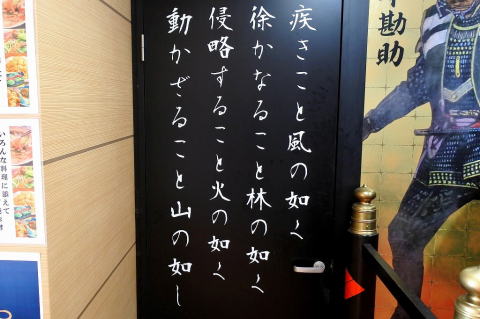 疾きこと風の如く
徐かなること林の如く
侵略すること火の如く
動かざること山の如し
勘助
いろんな料理に添えて